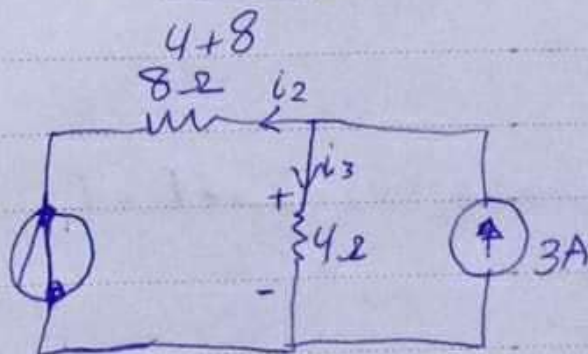 4+8
8Ω i2
i3
+
4Ω
3A
-